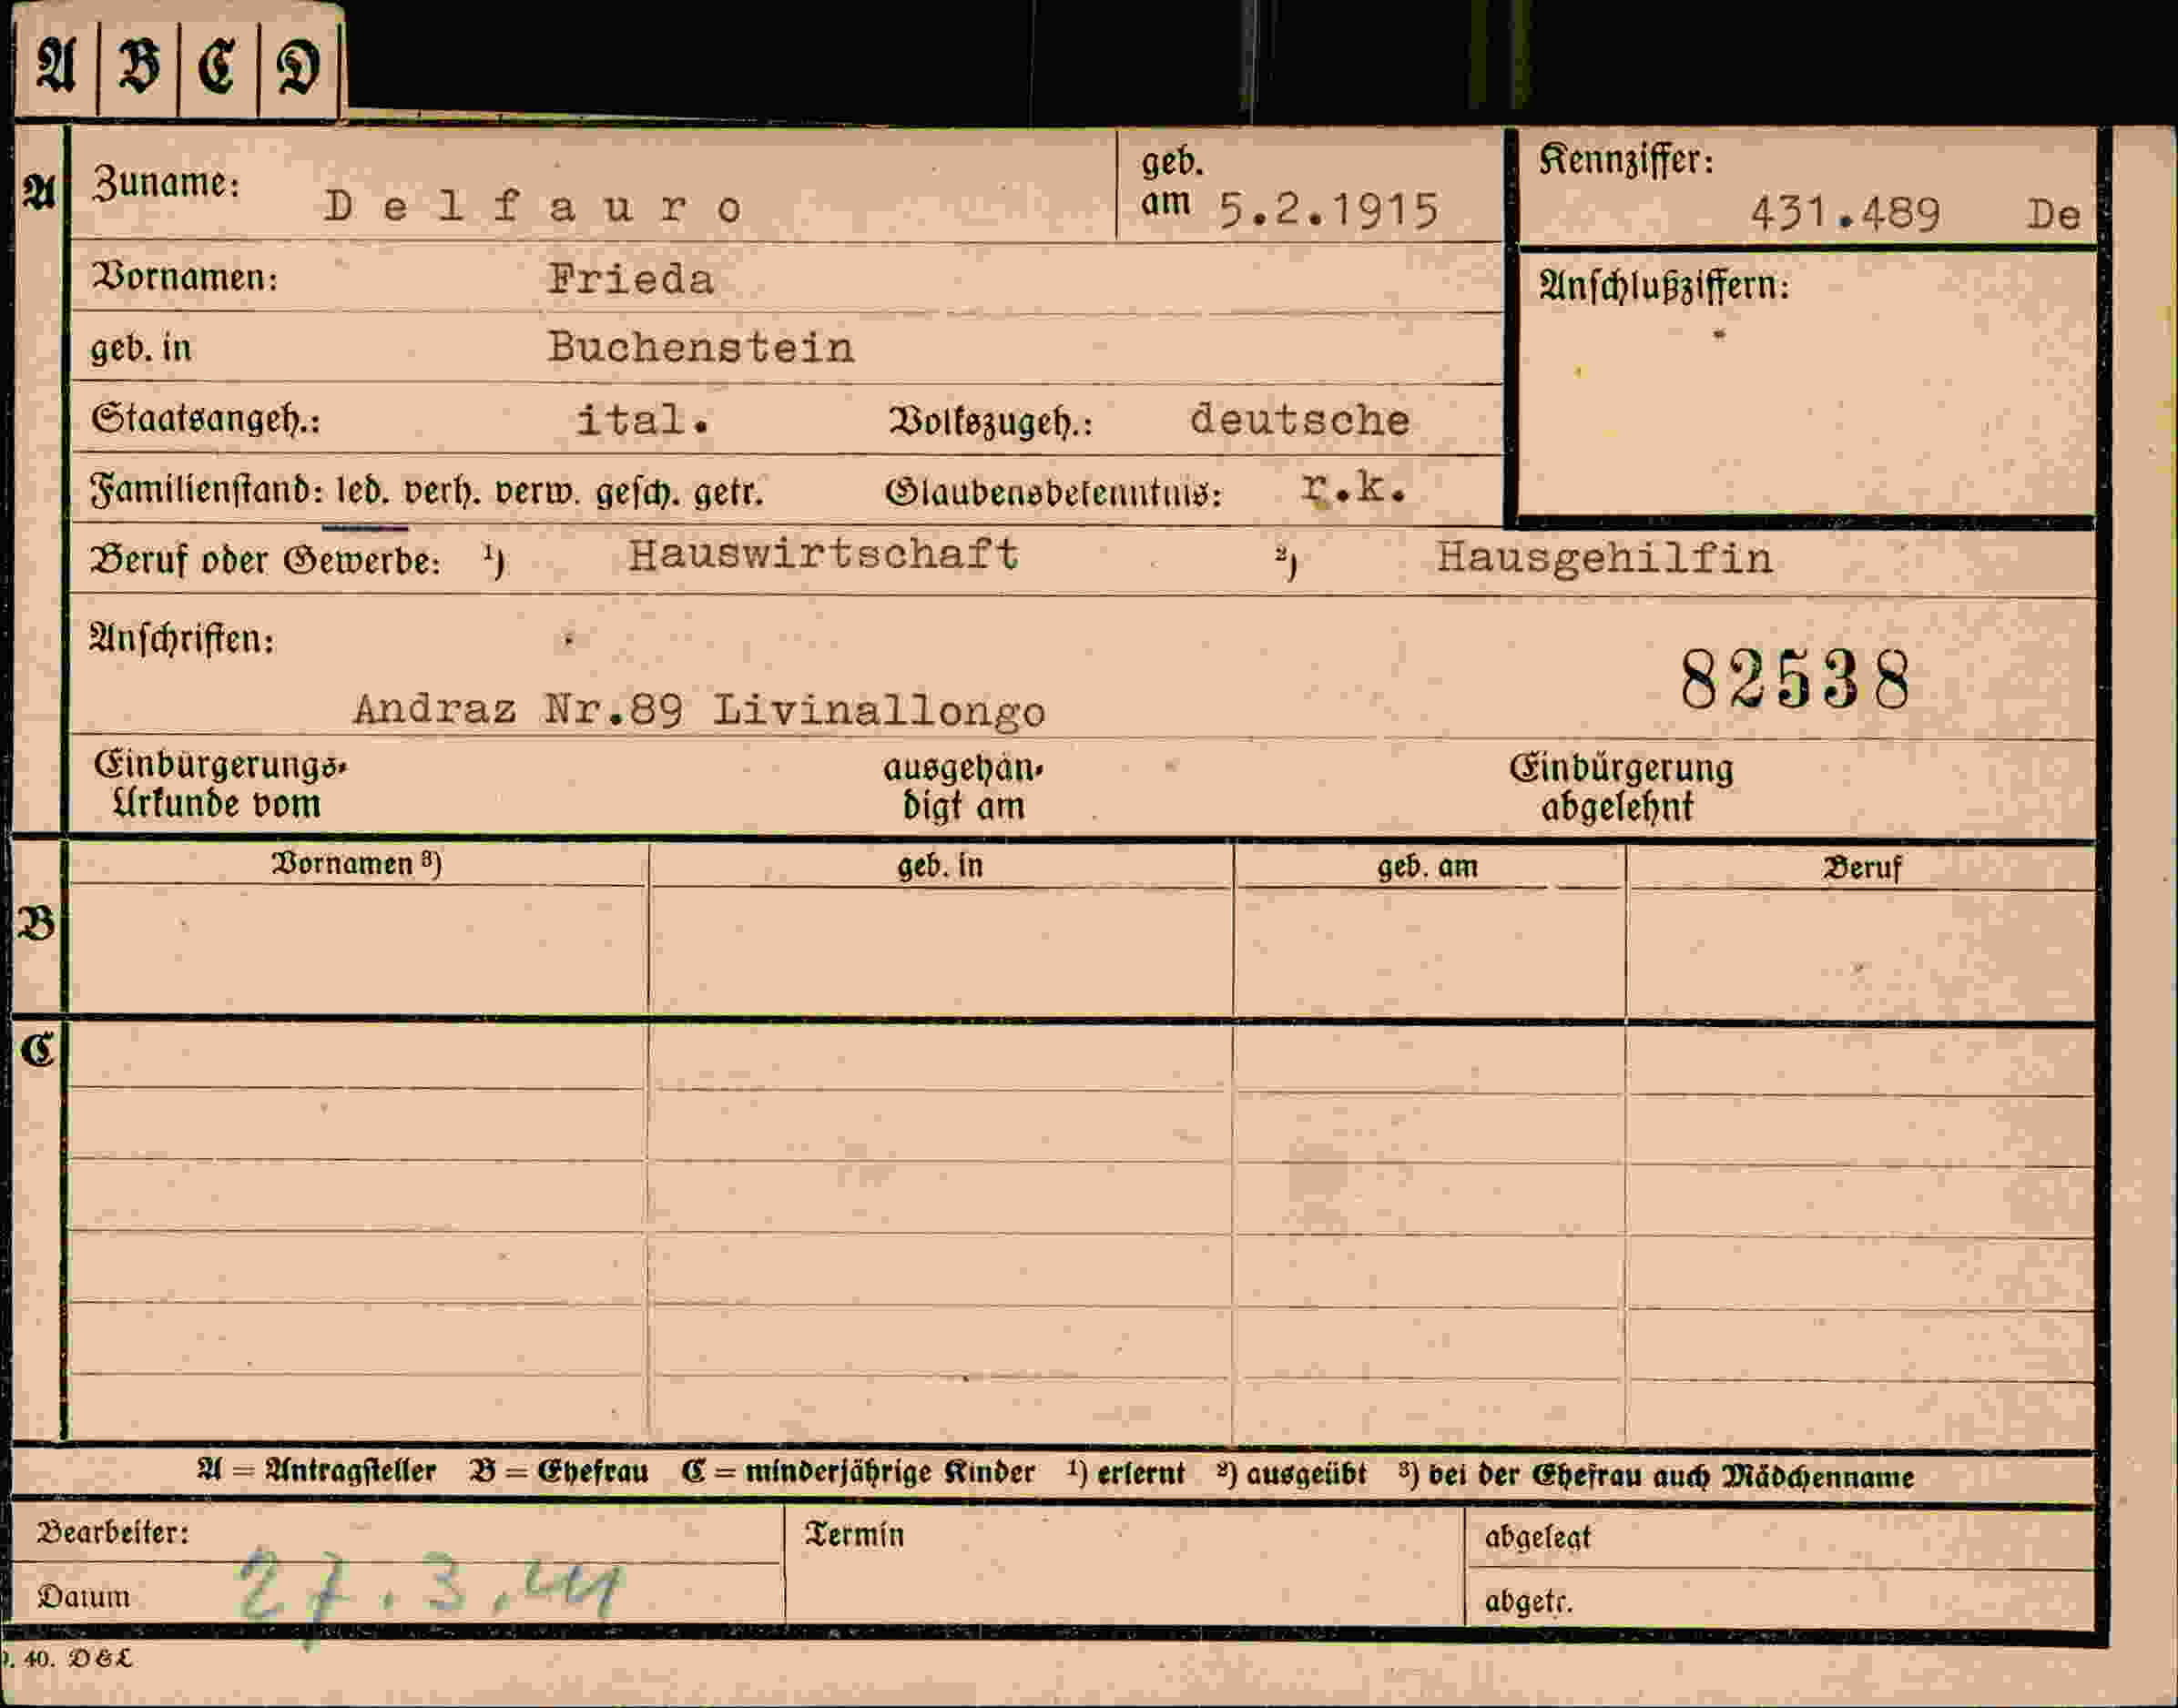 A B C D
A Zuname: Delfauro geb. am 5.2.1915 Kennziffer: 431.489 De
Vornamen: Frieda Anschlußziffern:
geb. in Buchenstein
Staatsangeh.: ital. Volkszugeh.: deutsche
Familienstand: led. verh. verw. gesch. getr. Glaubensbekenntnis: r.k.
Beruf oder Gewerbe: 1) Hauswirtschaft 2) Hausgehilfin
Anschriften: 82538
Andraz Nr.89 Livinallongo
Einbürgerungs- ausgehän- Einbürgerung
Urkunde vom digt am abgelehnt
Vornamen 3) geb. in geb. am Beruf
B
C
A = Antragsteller B = Ehefrau C = minderjährige Kinder 1) erlernt 2) ausgeübt 3) bei der Ehefrau auch Mädchenname
Bearbeiter: Termin abgelegt
Datum 27.3.41 abgetr.
40. D&L